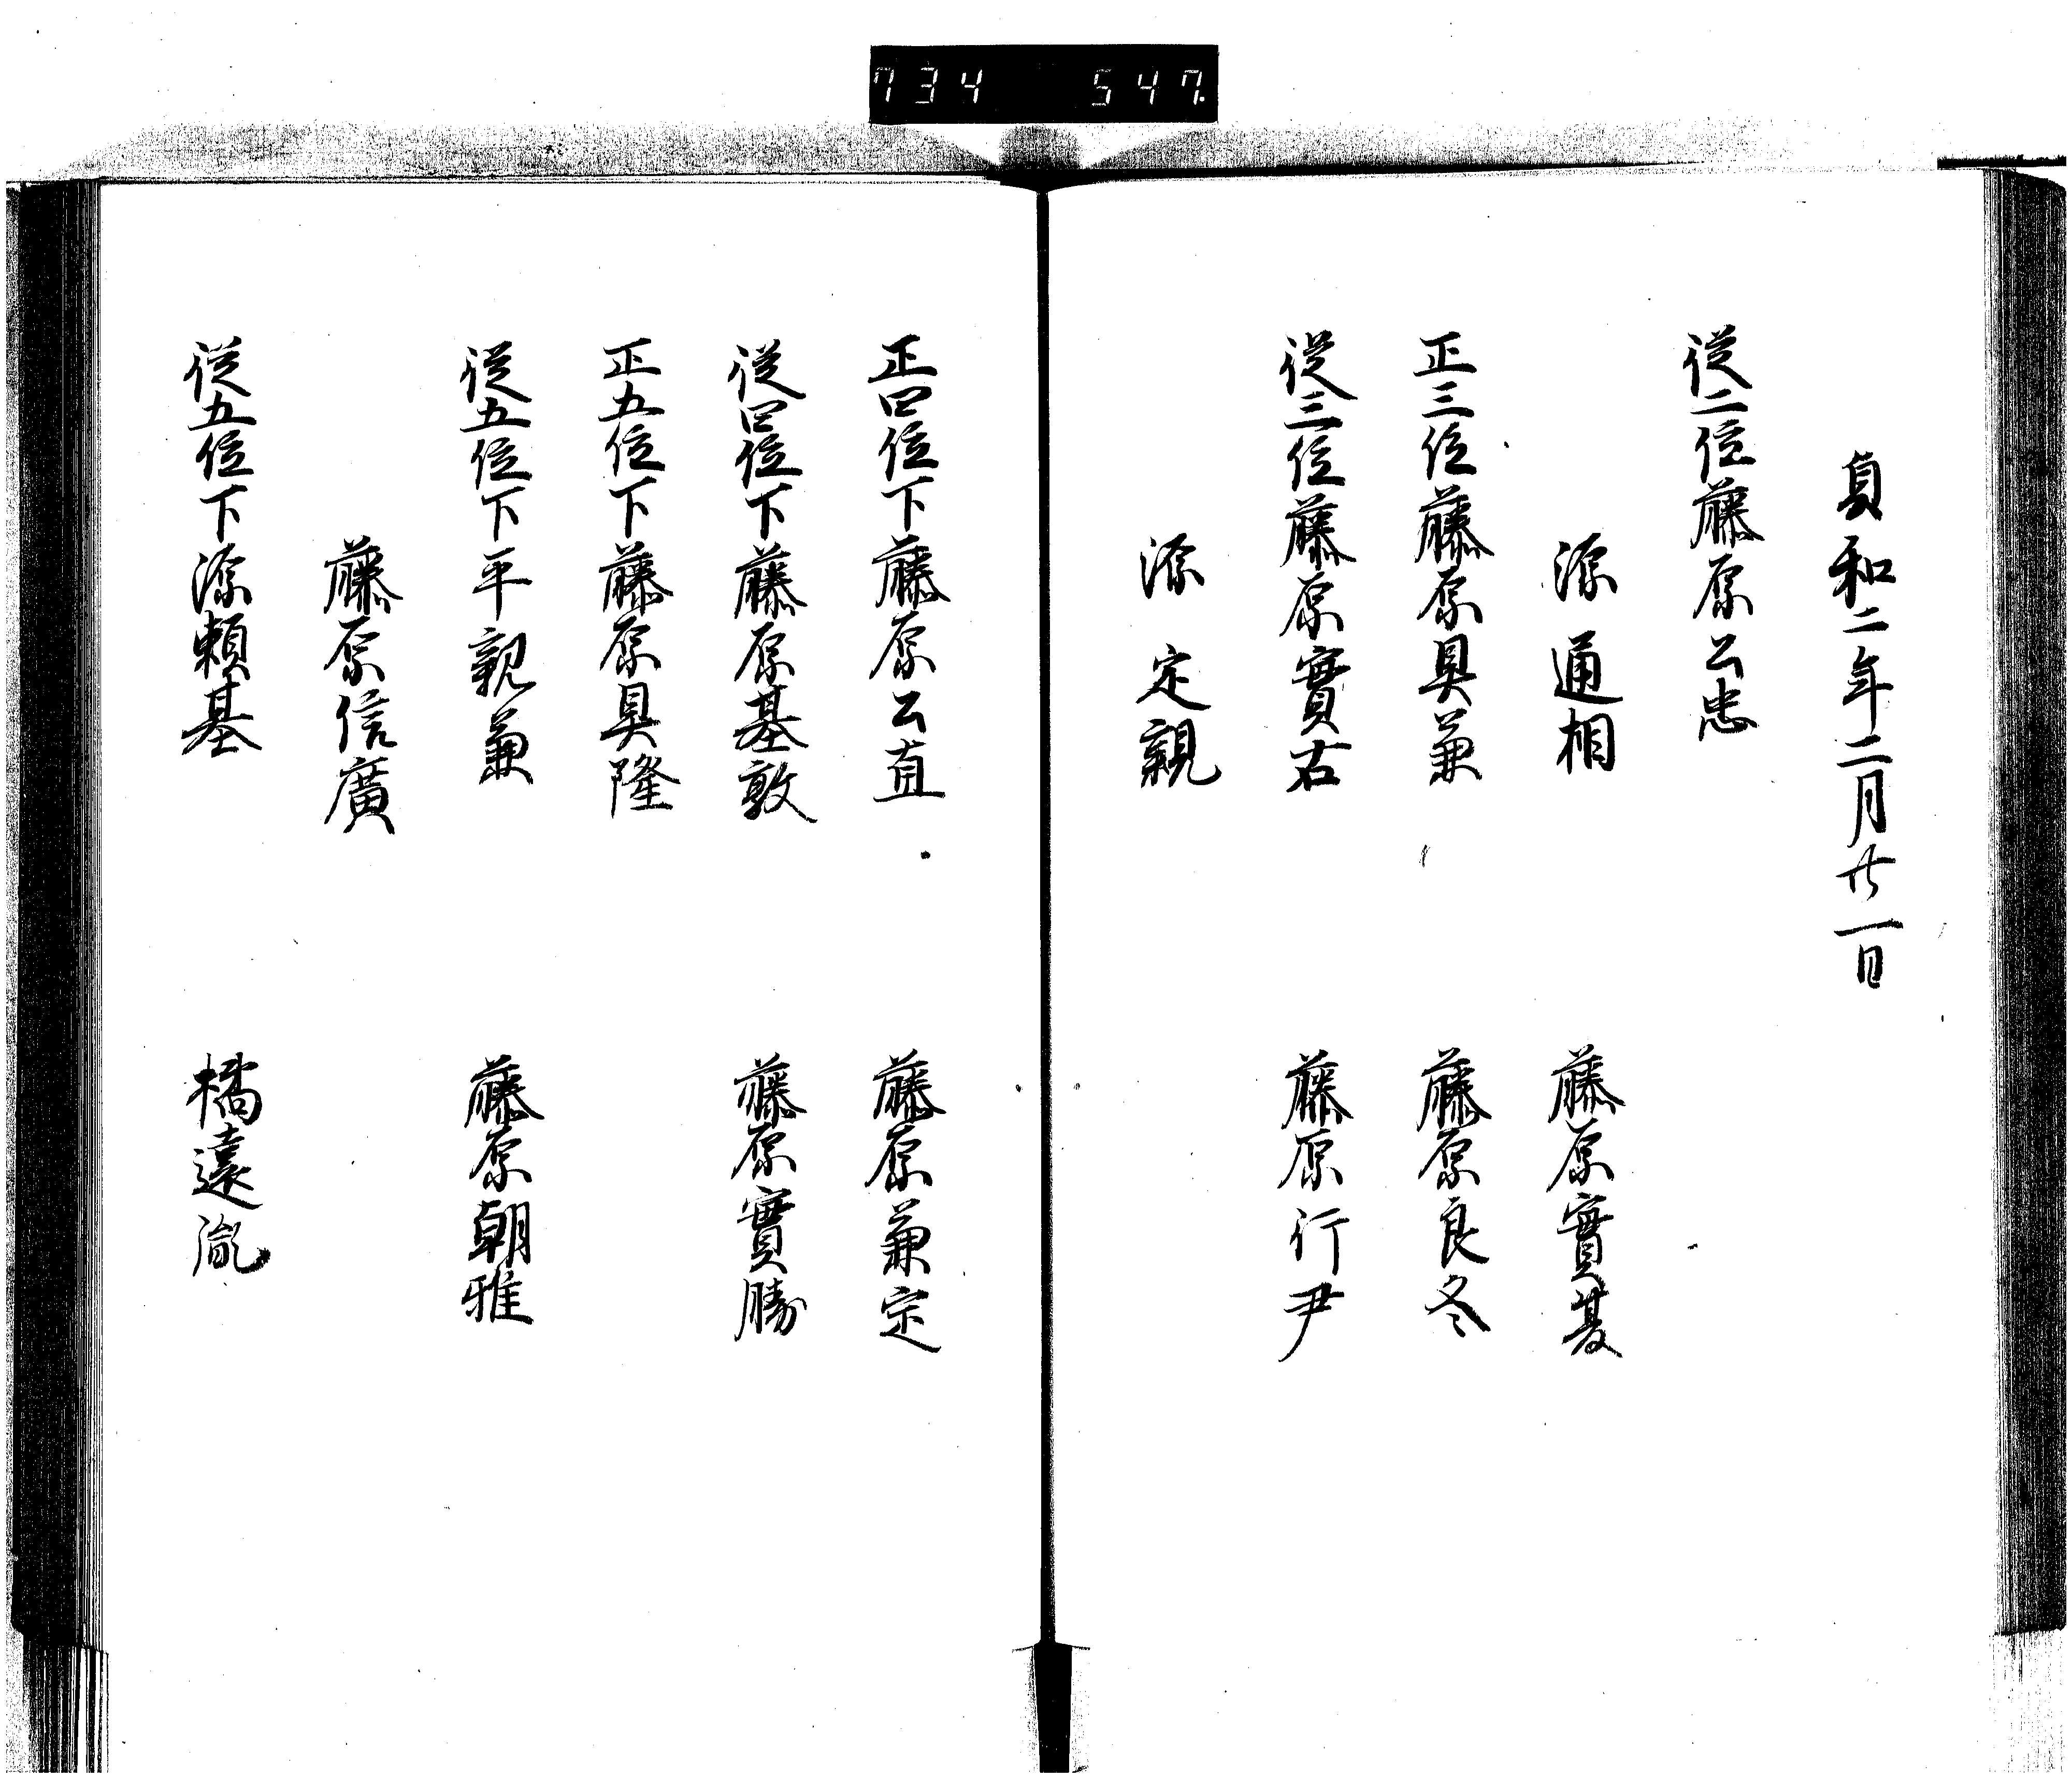 734 547
貞和二年二月廿一日
從二位藤原公忠
源通相 藤原實夏
正三位藤原具兼 藤原良冬
從三位藤原實右 藤原行尹
源定親
正四位下藤原公直 藤原兼定
從四位下藤原基敦 藤原實勝
正五位下藤原具隆
從五位下平親兼 藤原朝雅
藤原信廣
從五位下源頼基 橘遠胤